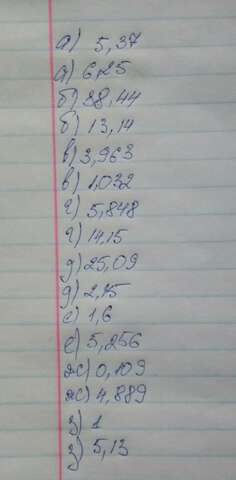 а) 5,37
а) 6,25
б) 88,44
б) 13,14
в) 3,963
в) 1,032
г) 5,848
г) 14,15
д) 25,09
д) 2,15
е) 1,6
е) 5,256
ж) 0,109
ж) 4,889
з) 1
з) 5,13